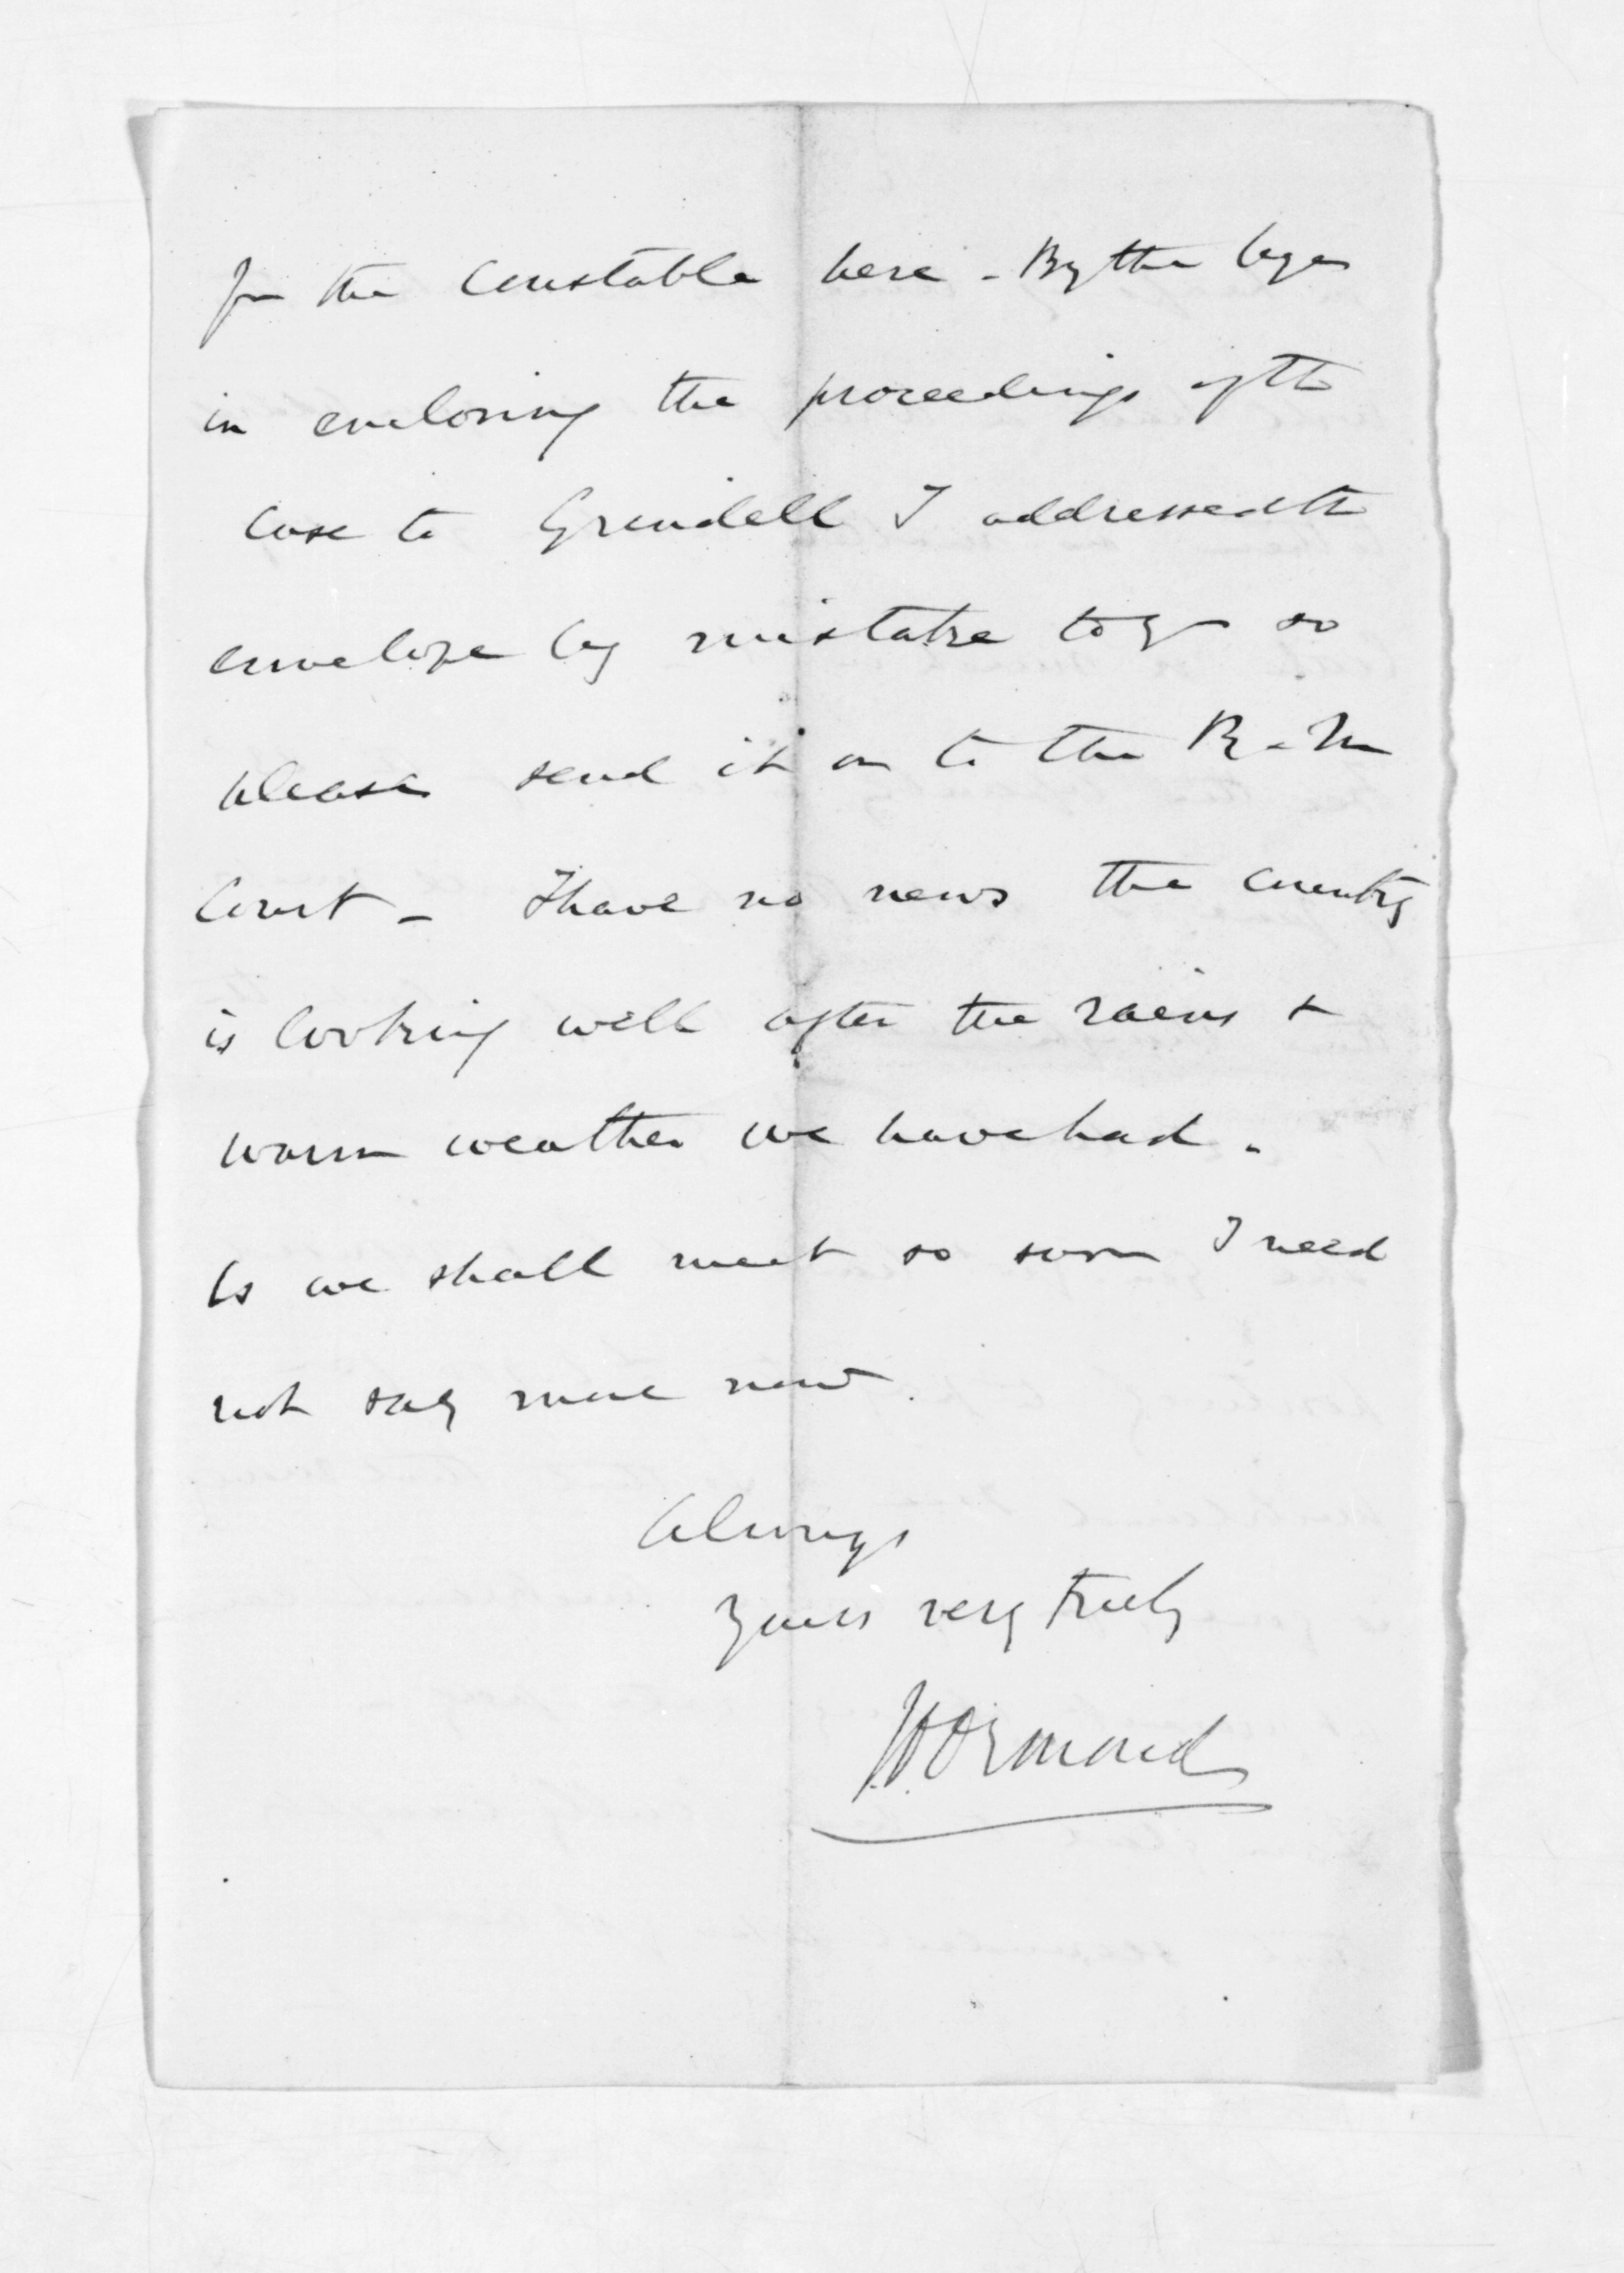 for the Constable here - By the bye
in enclosing the proceedings of the
case to Grindell I addressed the
envelope by mistake to you so
please send it on to the R. M
Court - I have no news the country
is looking well after the rains &
warm weather we have had.
As we shall meet so soon I need
not say more now.
Always
Yours very truly
J. D. Ormond